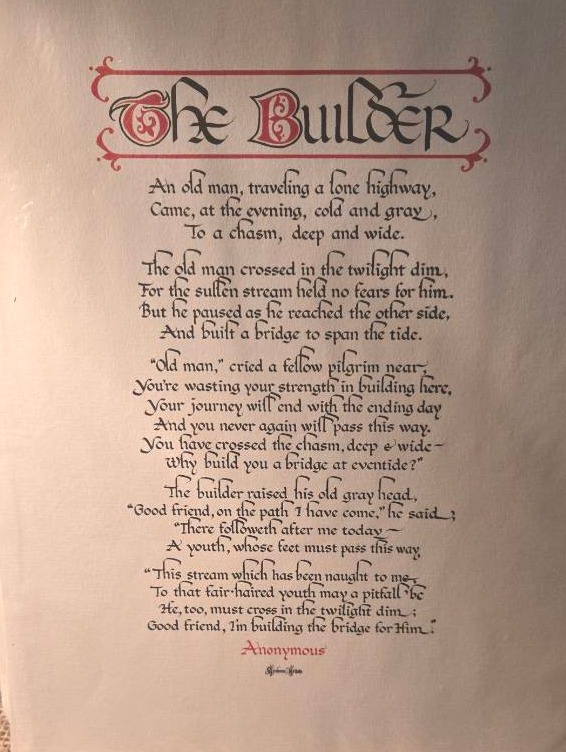 The Builder
An old man, traveling a lone highway,
Came, at the evening, cold and gray,
To a chasm, deep and wide.
The old man crossed in the twilight dim,
For the sullen stream held no fears for him.
But he paused as he reached the other side,
And built a bridge to span the tide.
"Old man," cried a fellow pilgrim near,
You're wasting your strength in building here,
Your journey will end with the ending day
And you never again will pass this way.
You have crossed the chasm, deep & wide–
Why build you a bridge at eventide?"
The builder raised his old gray head,
"Good friend, on the path I have come," he said;
"There followeth after me today–
A youth, whose feet must pass this way,
"This stream which has been naught to me,
To that fair-haired youth may a pitfall be
He, too, must cross in the twilight dim;
Good friend, I'm building the bridge for Him."
Anonymous